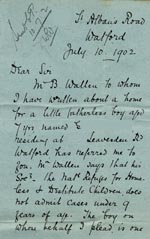 St Albans Road
Watford
July 10. 1902
Dear Sir
Mr B Wallen to whom
I have written about a home
for a little fatherless boy aged
7 yrs named E
residing at Leavesden Rd
Watford has referred me to
you. Mr Wallen says that his
Socy. The Natl Refuge for Home
less & Destitute Children does
not admit cases under 9
years of age. The boy on
whose behalf I plead is one